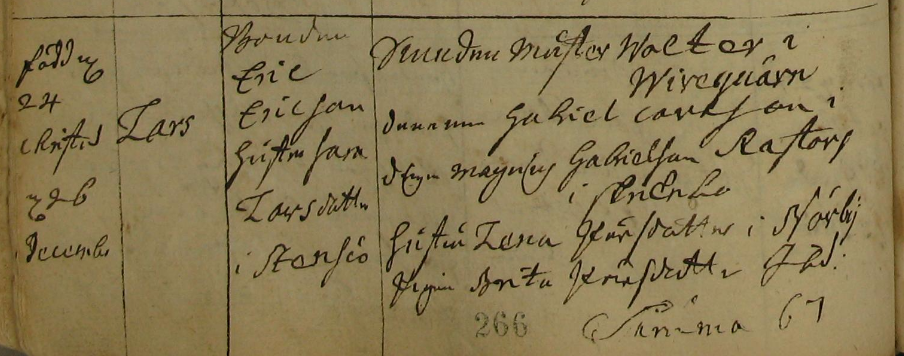 född
24
Christnd
26
December
Lars
Bonden
Eric
Ericson
hustru Sara
Larsdotter
i Stensiö
Smeden Mäster Wolter i
Wirequarn
Gabriel Carlson i
Drengen Magnus Gabrielson Rastorp
i
hustru Lena Persdotter i Norby
Pigan Brita Persdotter Ibid:
Summa 67
266